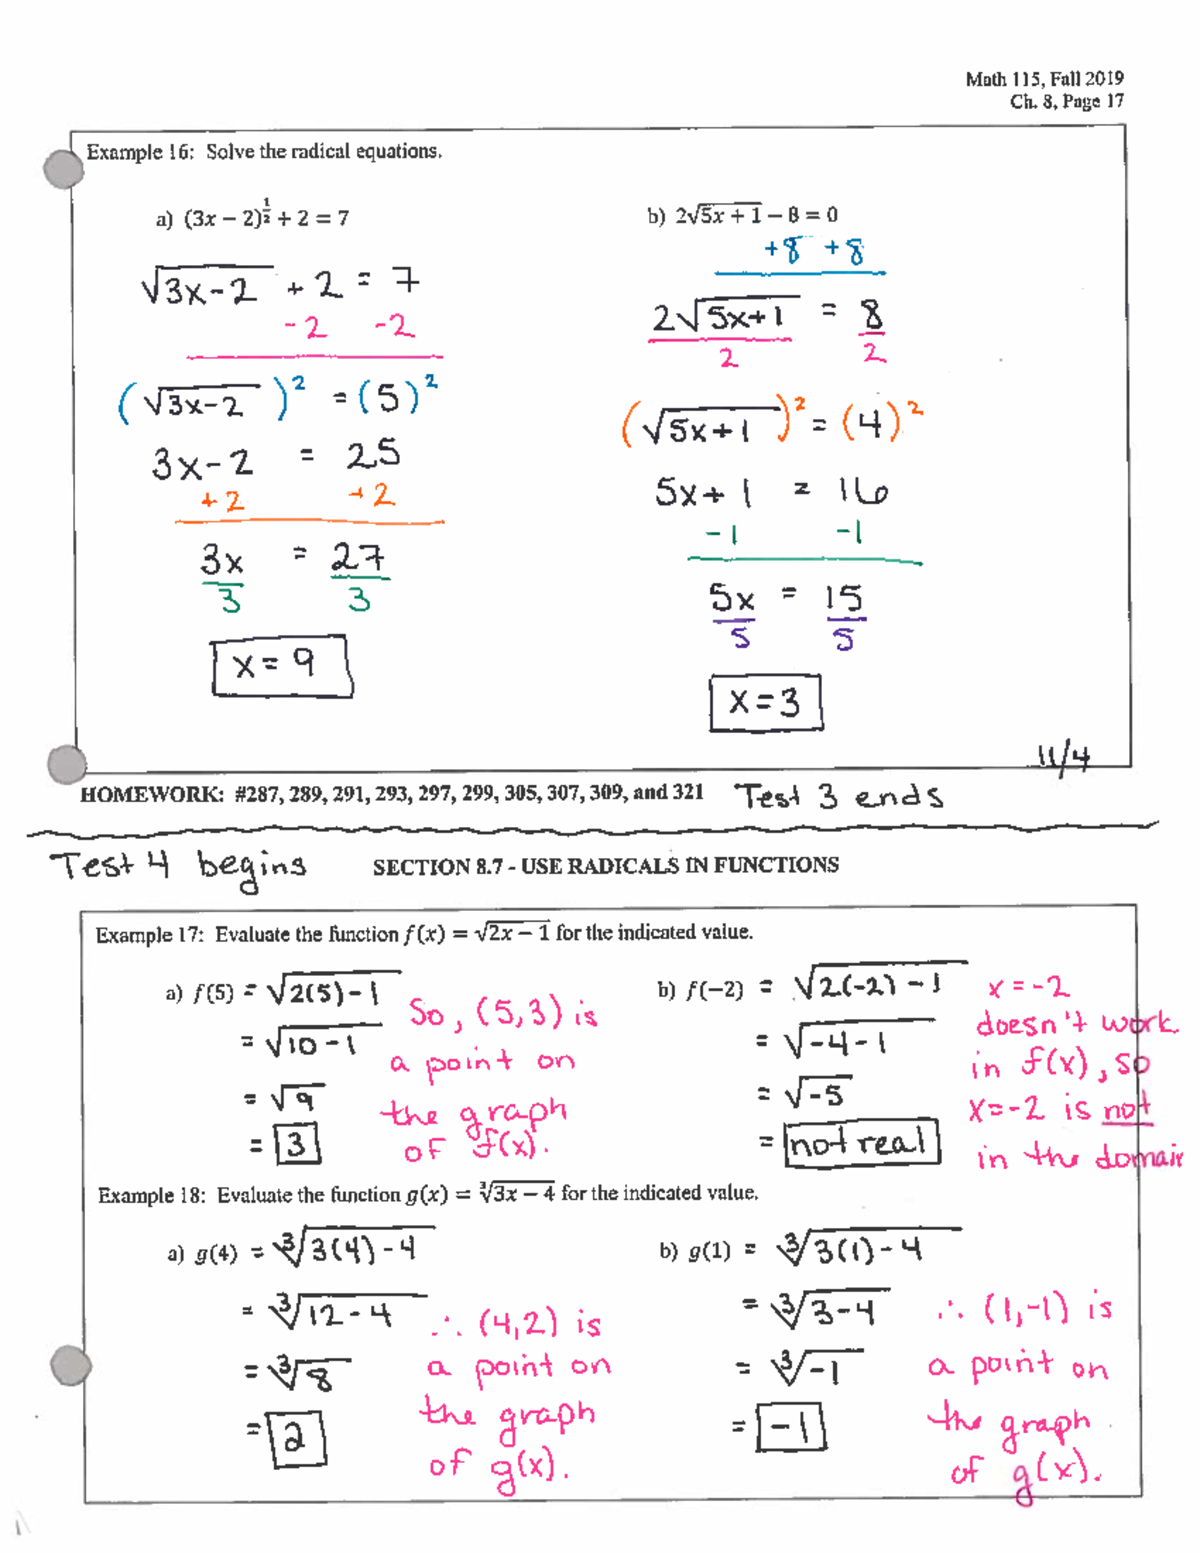 Math 115, Fall 2019
Ch. 8, Page 17
Example 16: Solve the radical equations.
a) (3x − 2)^{1/2} + 2 = 7
√(3x-2) + 2 = 7
-2 -2
(√(3x-2))² = (5)²
3x-2 = 25
+2 +2
3x = 27
3 3
x = 9
b) 2√(5x + 1) − 8 = 0
+8 +8
2√(5x+1) = 8
2 2
(√(5x+1))² = (4)²
5x+1 = 16
-1 -1
5x = 15
5 5
x=3
11/4
HOMEWORK: #287, 289, 291, 293, 297, 299, 305, 307, 309, and 321 Test 3 ends
Test 4 begins SECTION 8.7 - USE RADICALS IN FUNCTIONS
Example 17: Evaluate the function f(x) = √(2x − 1) for the indicated value.
a) f(5) = √(2(5)-1)
= √(10-1)
= √9
= 3
So, (5,3) is
a point on
the graph
of f(x).
b) f(−2) = √(2(-2)-1)
= √(-4-1)
= √-5
= not real
x = -2
doesn't work
in f(x), so
x=-2 is not
in the domain
Example 18: Evaluate the function g(x) = ∛(3x − 4) for the indicated value.
a) g(4) = ∛(3(4)-4)
= ∛(12-4)
= ∛8
= 2
∴ (4,2) is
a point on
the graph
of g(x).
b) g(1) = ∛(3(1)-4)
= ∛(3-4)
= ∛-1
= -1
∴ (1,-1) is
a point on
the graph
of g(x).